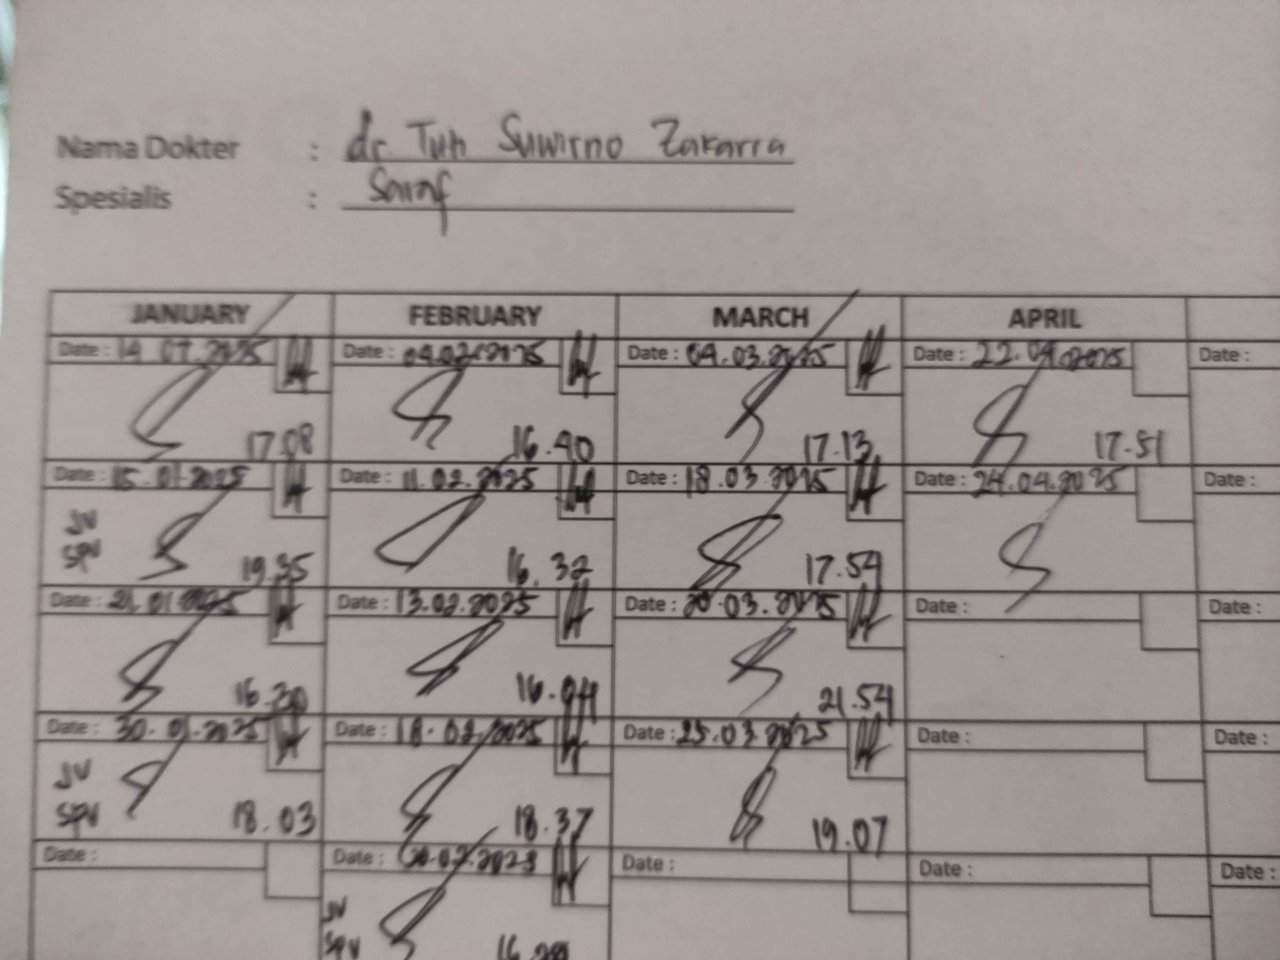 Nama Dokter : dr Tuh Suwirno Zakaria
Spesialis : Saraf
JANUARY FEBRUARY MARCH APRIL
Date : Date : 04.02.2025 Date : 04.03.2025 Date : 22.04.2025 Date :
17.08 16.40 17.13 17.51
Date : 15.01.2025 Date : 11.02.2025 Date : 18.03.2025 Date : 24.04.2025 Date :
JV
SPV 19.35 16.32 17.54
Date : 21.01.2025 Date : 13.02.2025 Date : 20.03.2025 Date : Date :
16.30 16.04 21.54
Date : 30.01.2025 Date : 18.02.2025 Date : 25.03.2025 Date : Date :
JV
SPV 18.03 18.37 19.07
Date : Date : 20.02.2025 Date : Date : Date :
JV
SPV